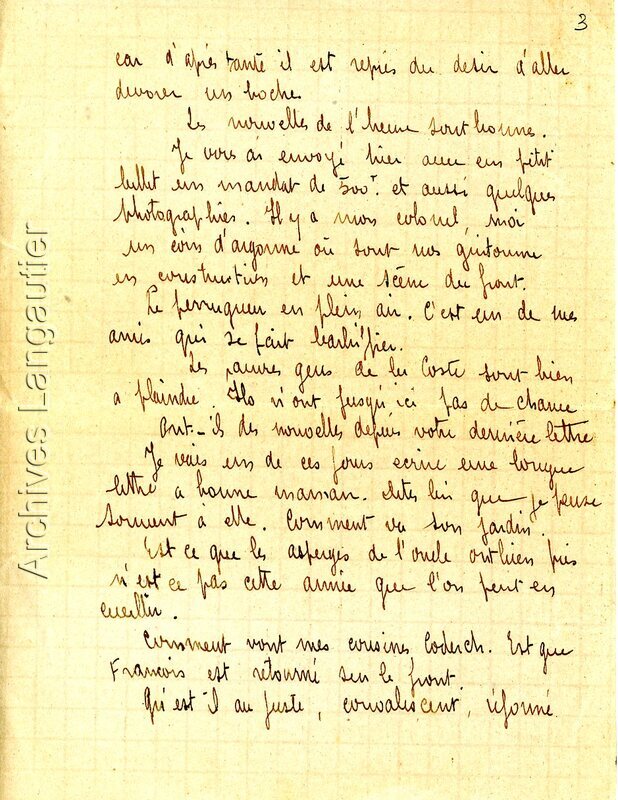 3
car d'après tante il est repris du desir d'aller
devorer un boche.
Les nouvelles de l'heure sont bonnes.
Je vous ai envoyé hier avec un petit
billet un mandat de 500f. et aussi quelques
photographies. Il y a mon colonel, moi
un coin d'argonne où sont nos guitoune
en construction et une scène du front.
Le perruquier en plein air. C'est un de mes
amis qui se fait barbifier.
Les pauvres gens de la Coste sont bien
a plaindre. Ils n'ont jusqu'ici pas de chance
Ont-ils des nouvelles depuis votre dernière lettre
Je vais un de ces jours ecrire une longue
lettre a bonne maman. dites lui que je pense
souvent à elle. Comment va son jardin.
Est ce que les asperges de l'oncle ont bien pris
n'est ce pas cette année que l'on peut en
cueillir.
Comment vont mes cousines Coderch. Est que
François est retourné sur le front.
Qu'est il au juste, convalescent, réformé
Archives Langautier